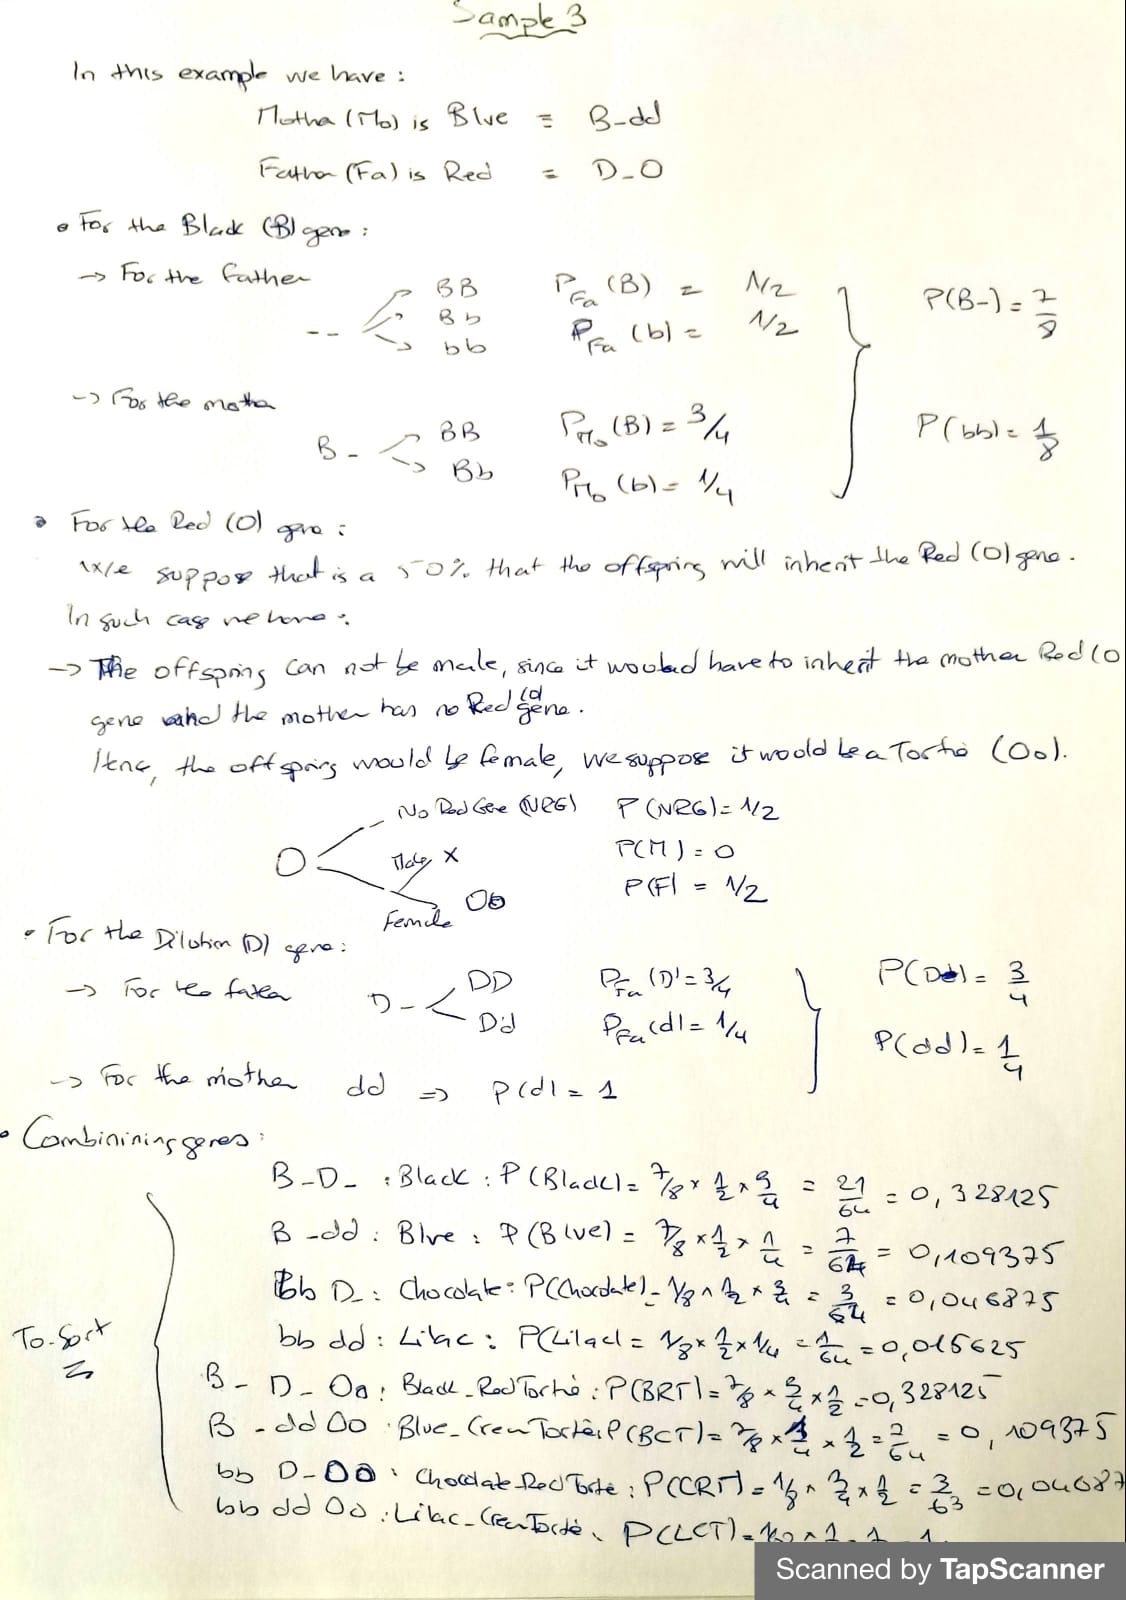 Sample 3
In this example we have :
Motha (Mo) is Blue = B-dd
Father (Fa) is Red = D-O
• For the Black (B) gene :
-> For the father
-- BB Bb bb
P_Fa (B) = 1/2
P_Fa (b) = 1/2
P(B-) = 7/8
-> For the motha
B - BB Bb
P_Mo (B) = 3/4
P_Mo (b) = 1/4
P(bb) = 1/8
• For the Red (O) gene :
We suppose that is a 50% that the offspring will inherit the Red (O) gene.
In such case we have :
-> The offspring can not be male, since it would have to inherit the mother Red (O
gene and the mother has no Red (O) gene.
Henc, the offspring would be female, we suppose it would be a Tortie (Oo).
O
No Red Gene (NRG) P(NRG) = 1/2
Male X P(M) = 0
Female Oo P(F) = 1/2
• For the Dilution (D) gene :
-> For the father D - DD Dd
P_Fa (D) = 3/4
P_Fa (d) = 1/4
P(Dd) = 3/4
P(dd) = 1/4
-> For the mother dd => P(d) = 1
• Combinining genes :
To-Sort
B-D- : Black : P(Black) = 7/8 x 1/2 x 3/4 = 21/64 = 0,328125
B-dd : Blue : P(Blue) = 7/8 x 1/2 x 1/4 = 7/64 = 0,109375
bb D- : Chocolate : P(Chocolate) = 1/8 x 1/2 x 3/4 = 3/64 = 0,046875
bb dd : Lilac : P(Lilac) = 1/8 x 1/2 x 1/4 = 1/64 = 0,015625
B - D - Oo : Black-Red Tortie : P(BRT) = 7/8 x 3/4 x 1/2 = 0,328125
B - dd Oo : Blue-Crem Tortie : P(BCT) = 7/8 x 1/4 x 1/2 = 7/64 = 0,109375
bb D-Oo : Chocolate-Red Tortie : P(CRT) = 1/8 x 3/4 x 1/2 = 3/63 = 0,04687
bb dd Oo : Lilac-Crem Tortie P(LCT) =
Scanned by TapScanner